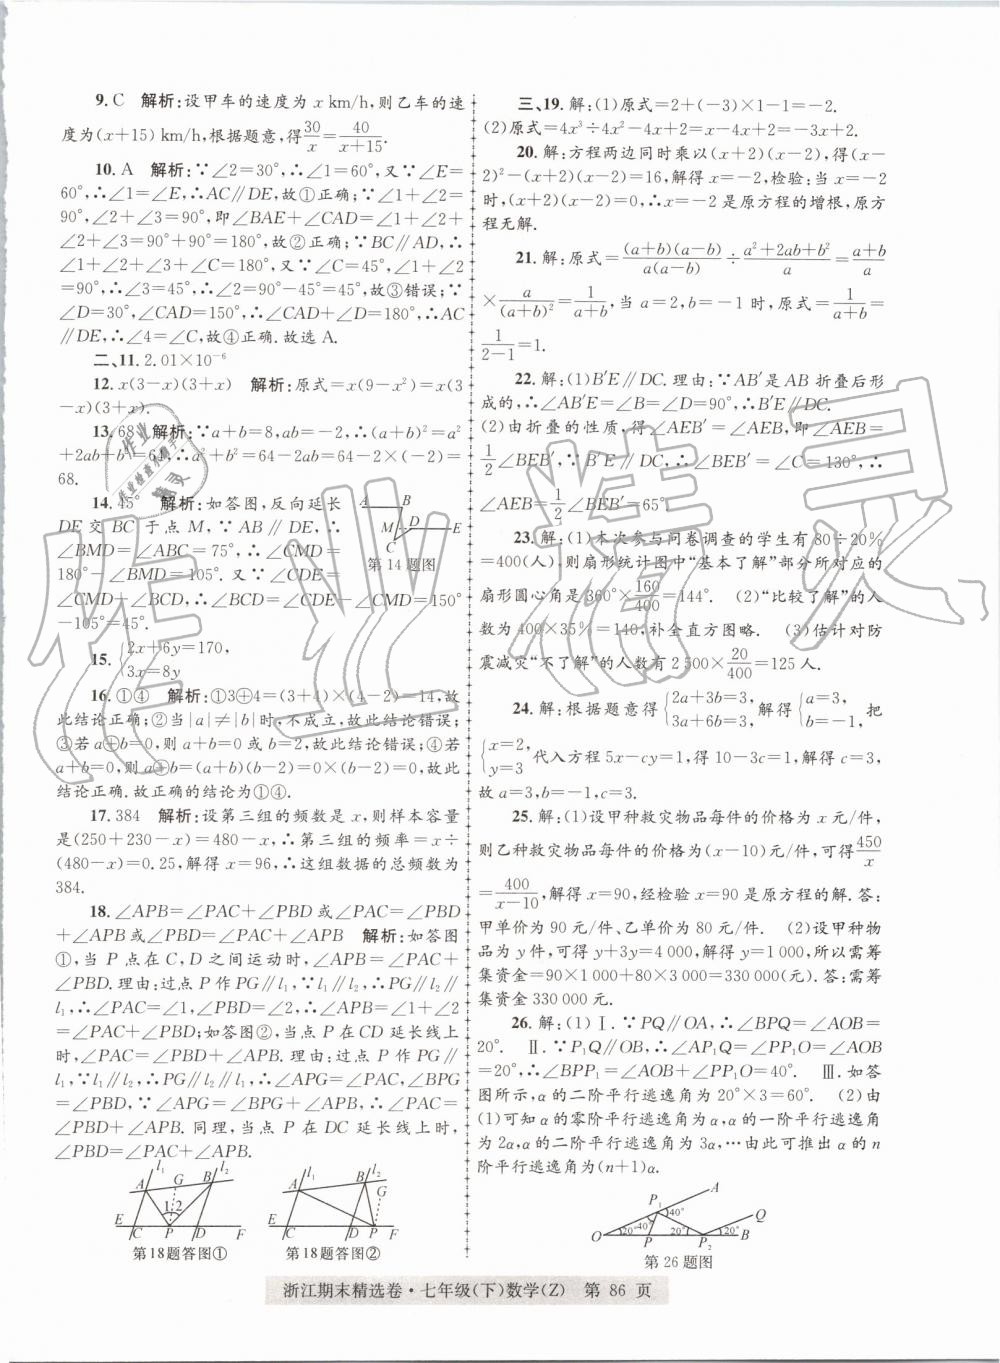 9. C　解析:设甲车的速度为 x km/h,则乙车的速
度为(x+15) km/h,根据题意,得30/x=40/(x+15).
10. A　解析:∵∠2=30°,∴∠1=60°,又∵∠E=
60°,∴∠1=∠E,∴AC∥DE,故①正确;∵∠1+∠2=
90°,∠2+∠3=90°,即∠BAE+∠CAD=∠1+∠2+
∠2+∠3=90°+90°=180°,故②正确;∵BC∥AD,∴
∠1+∠2+∠3+∠C=180°,又∵∠C=45°,∠1+∠2
=90°,∴∠3=45°,∴∠2=90°-45°=45°,故③错误;∵
∠D=30°,∠CAD=150°,∴∠CAD+∠D=180°,∴AC
∥DE,∴∠4=∠C,故④正确.故选A.
二、11. 2.01×10⁻⁶
12. x(3-x)(3+x)　解析:原式=x(9-x²)=x(3
-x)(3+x).
13. 68　解析:∵a+b=8,ab=-2,∴(a+b)²=a²
+2ab+b²=64,∴a²+b²=64-2ab=64-2×(-2)=
68.
14. 45°　解析:如答图,反向延长
DE交BC于点M,∵AB∥DE,∴
∠BMD=∠ABC=75°,∴∠CMD=
180°-∠BMD=105°.又∵∠CDE=
∠CMD+∠BCD,∴∠BCD=∠CDE-∠CMD=150°
-105°=45°.
A B M D E C
第14题图
15. {2x+6y=170,
3x=8y
16. ①④　解析:①3⊕4=(3+4)×(4-2)=14,故
此结论正确;②当|a|≠|b|时,不成立,故此结论错误;
③若a⊕b=0,则a+b=0或b=2,故此结论错误;④若
a+b=0,则a⊕b=(a+b)(b-2)=0×(b-2)=0,故此
结论正确.故正确的结论为①④.
17. 384　解析:设第三组的频数是x,则样本容量
是(250+230-x)=480-x,∴第三组的频率=x÷
(480-x)=0.25,解得x=96,∴这组数据的总频数为
384.
18. ∠APB=∠PAC+∠PBD或∠PAC=∠PBD
+∠APB或∠PBD=∠PAC+∠APB　解析:如答图
①,当P点在C,D之间运动时,∠APB=∠PAC+
∠PBD.理由:过点P作PG∥l₁,∵l₁∥l₂,∴PG∥l₂∥
l₁,∴∠PAC=∠1,∠PBD=∠2,∴∠APB=∠1+∠2
=∠PAC+∠PBD;如答图②,当点P在CD延长线上
时,∠PAC=∠PBD+∠APB.理由:过点P作PG∥
l₁,∵l₁∥l₂,∴PG∥l₁∥l₂,∴∠APG=∠PAC,∠BPG
=∠PBD,∵∠APG=∠BPG+∠APB,∴∠PAC=
∠PBD+∠APB.同理,当点P在DC延长线上时,
∠PBD=∠PAC+∠APB.
A l₁ G B l₂ 1 2 E C P D F
第18题答图①
A l₁ B l₂ G E C D P F
第18题答图②
三、19. 解:(1)原式=2+(-3)×1-1=-2.
(2)原式=4x³÷4x²-4x+2=x-4x+2=-3x+2.
20. 解:方程两边同时乘以(x+2)(x-2),得(x-
2)²-(x+2)(x-2)=16,解得x=-2,检验:当x=-2
时,(x+2)(x-2)=0,∴x=-2是原方程的增根,原方
程无解.
21. 解:原式=(a+b)(a-b)/a(a-b)÷(a²+2ab+b²)/a=(a+b)/a
×a/(a+b)²=1/(a+b),当a=2,b=-1时,原式=1/(a+b)=
1/(2-1)=1.
22. 解:(1)B′E∥DC.理由:∵AB′是AB折叠后形
成的,∴∠AB′E=∠B=∠D=90°,∴B′E∥DC.
(2)由折叠的性质,得∠AEB′=∠AEB,即∠AEB=
1/2∠BEB′,∵B′E∥DC,∴∠BEB′=∠C=130°,∴
∠AEB=1/2∠BEB′=65°.
23. 解:(1)本次参与问卷调查的学生有80÷20%
=400(人),则扇形统计图中“基本了解”部分所对应的
扇形圆心角是360°×160/400=144°.　(2)“比较了解”的人
数为400×35%=140,补全直方图略.　(3)估计对防
震减灾“不了解”的人数有2 500×20/400=125人.
24. 解:根据题意得{2a+3b=3,3a+6b=3,解得{a=3,b=-1,把
{x=2,y=3代入方程5x-cy=1,得10-3c=1,解得c=3,
故a=3,b=-1,c=3.
25. 解:(1)设甲种救灾物品每件的价格为x元/件,
则乙种救灾物品每件的价格为(x-10)元/件,可得450/x
=400/(x-10),解得x=90,经检验x=90是原方程的解.答:
甲单价为90元/件、乙单价为80元/件.　(2)设甲种物
品为y件,可得y+3y=4 000,解得y=1 000,所以需筹
集资金=90×1 000+80×3 000=330 000(元).答:需筹
集资金330 000元.
26. 解:(1)Ⅰ.∵PQ∥OA,∴∠BPQ=∠AOB=
20°.　Ⅱ.∵P₁Q∥OB,∴∠AP₁Q=∠PP₁O=∠AOB
=20°,∴∠BPP₁=∠AOB+∠PP₁O=40°.　Ⅲ.如答
图所示,α的二阶平行逃逸角为20°×3=60°.　(2)由
(1)可知α的零阶平行逃逸角为α,α的一阶平行逃逸角
为2α,α的二阶平行逃逸角为3α,…由此可推出α的n
阶平行逃逸角为(n+1)α.
O P P₁ P₂ A B Q 20° 40° 40° 20° 20°
第26题图
浙江期末精选卷·七年级(下)数学(Z)　第 86 页
作业精灵